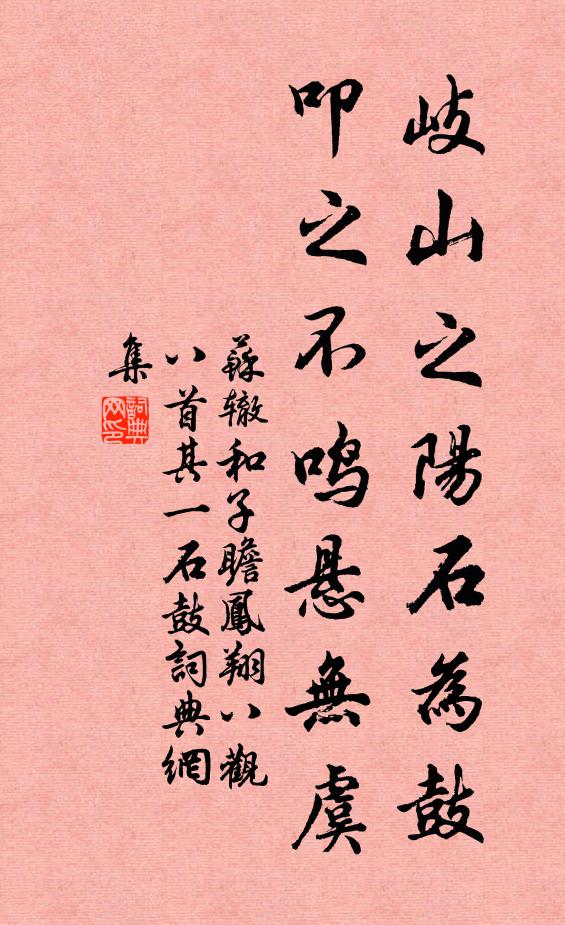 岐山之陽石為鼓
叩之不鸣悬無虞
蘇辙和子瞻鳳翔八觀
八首其一石鼓詞典網
集
詞典
网印